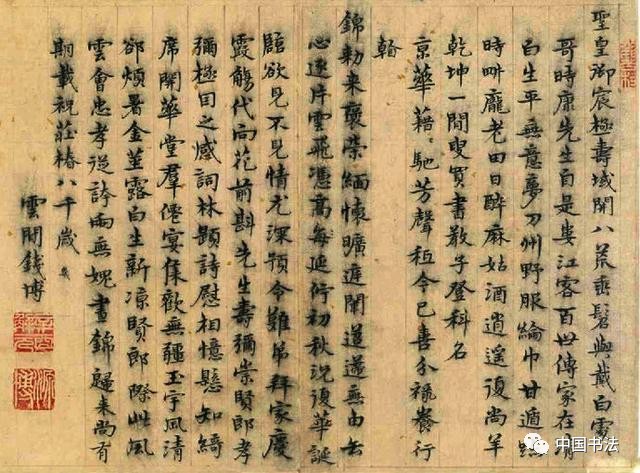 聖皇御宸極壽域開八荒垂髫與戴白
哥時康先生自是婁江客百世傳家在清
白生平無意夢刀州野服綸巾甘遁
時呼龐老田日醉麻姑酒逍遙復尚羊
乾坤一閒叟買書教子登科名
京華藉馳芳聲秖今已喜分祿養行
錦勑来褒榮緬懷曠遊闌道遥無由去
心逐片雲飛憑高每延佇初秋況復華誕
臨欲見不見情尤深預令難弟拜家慶
霞觴代向花前斟先生壽彌崇賢郎孝
彌極目之感詞林題詩慰相憶懸知綺
席開華堂羣僊宴集歡無疆玉宇風清
卻煩暑金莖露白生新凉賢郎際此風
雲會忠孝從誇兩無媿晝錦歸来尚有
期載祝莊椿八千歲
雲間錢博
中国书法